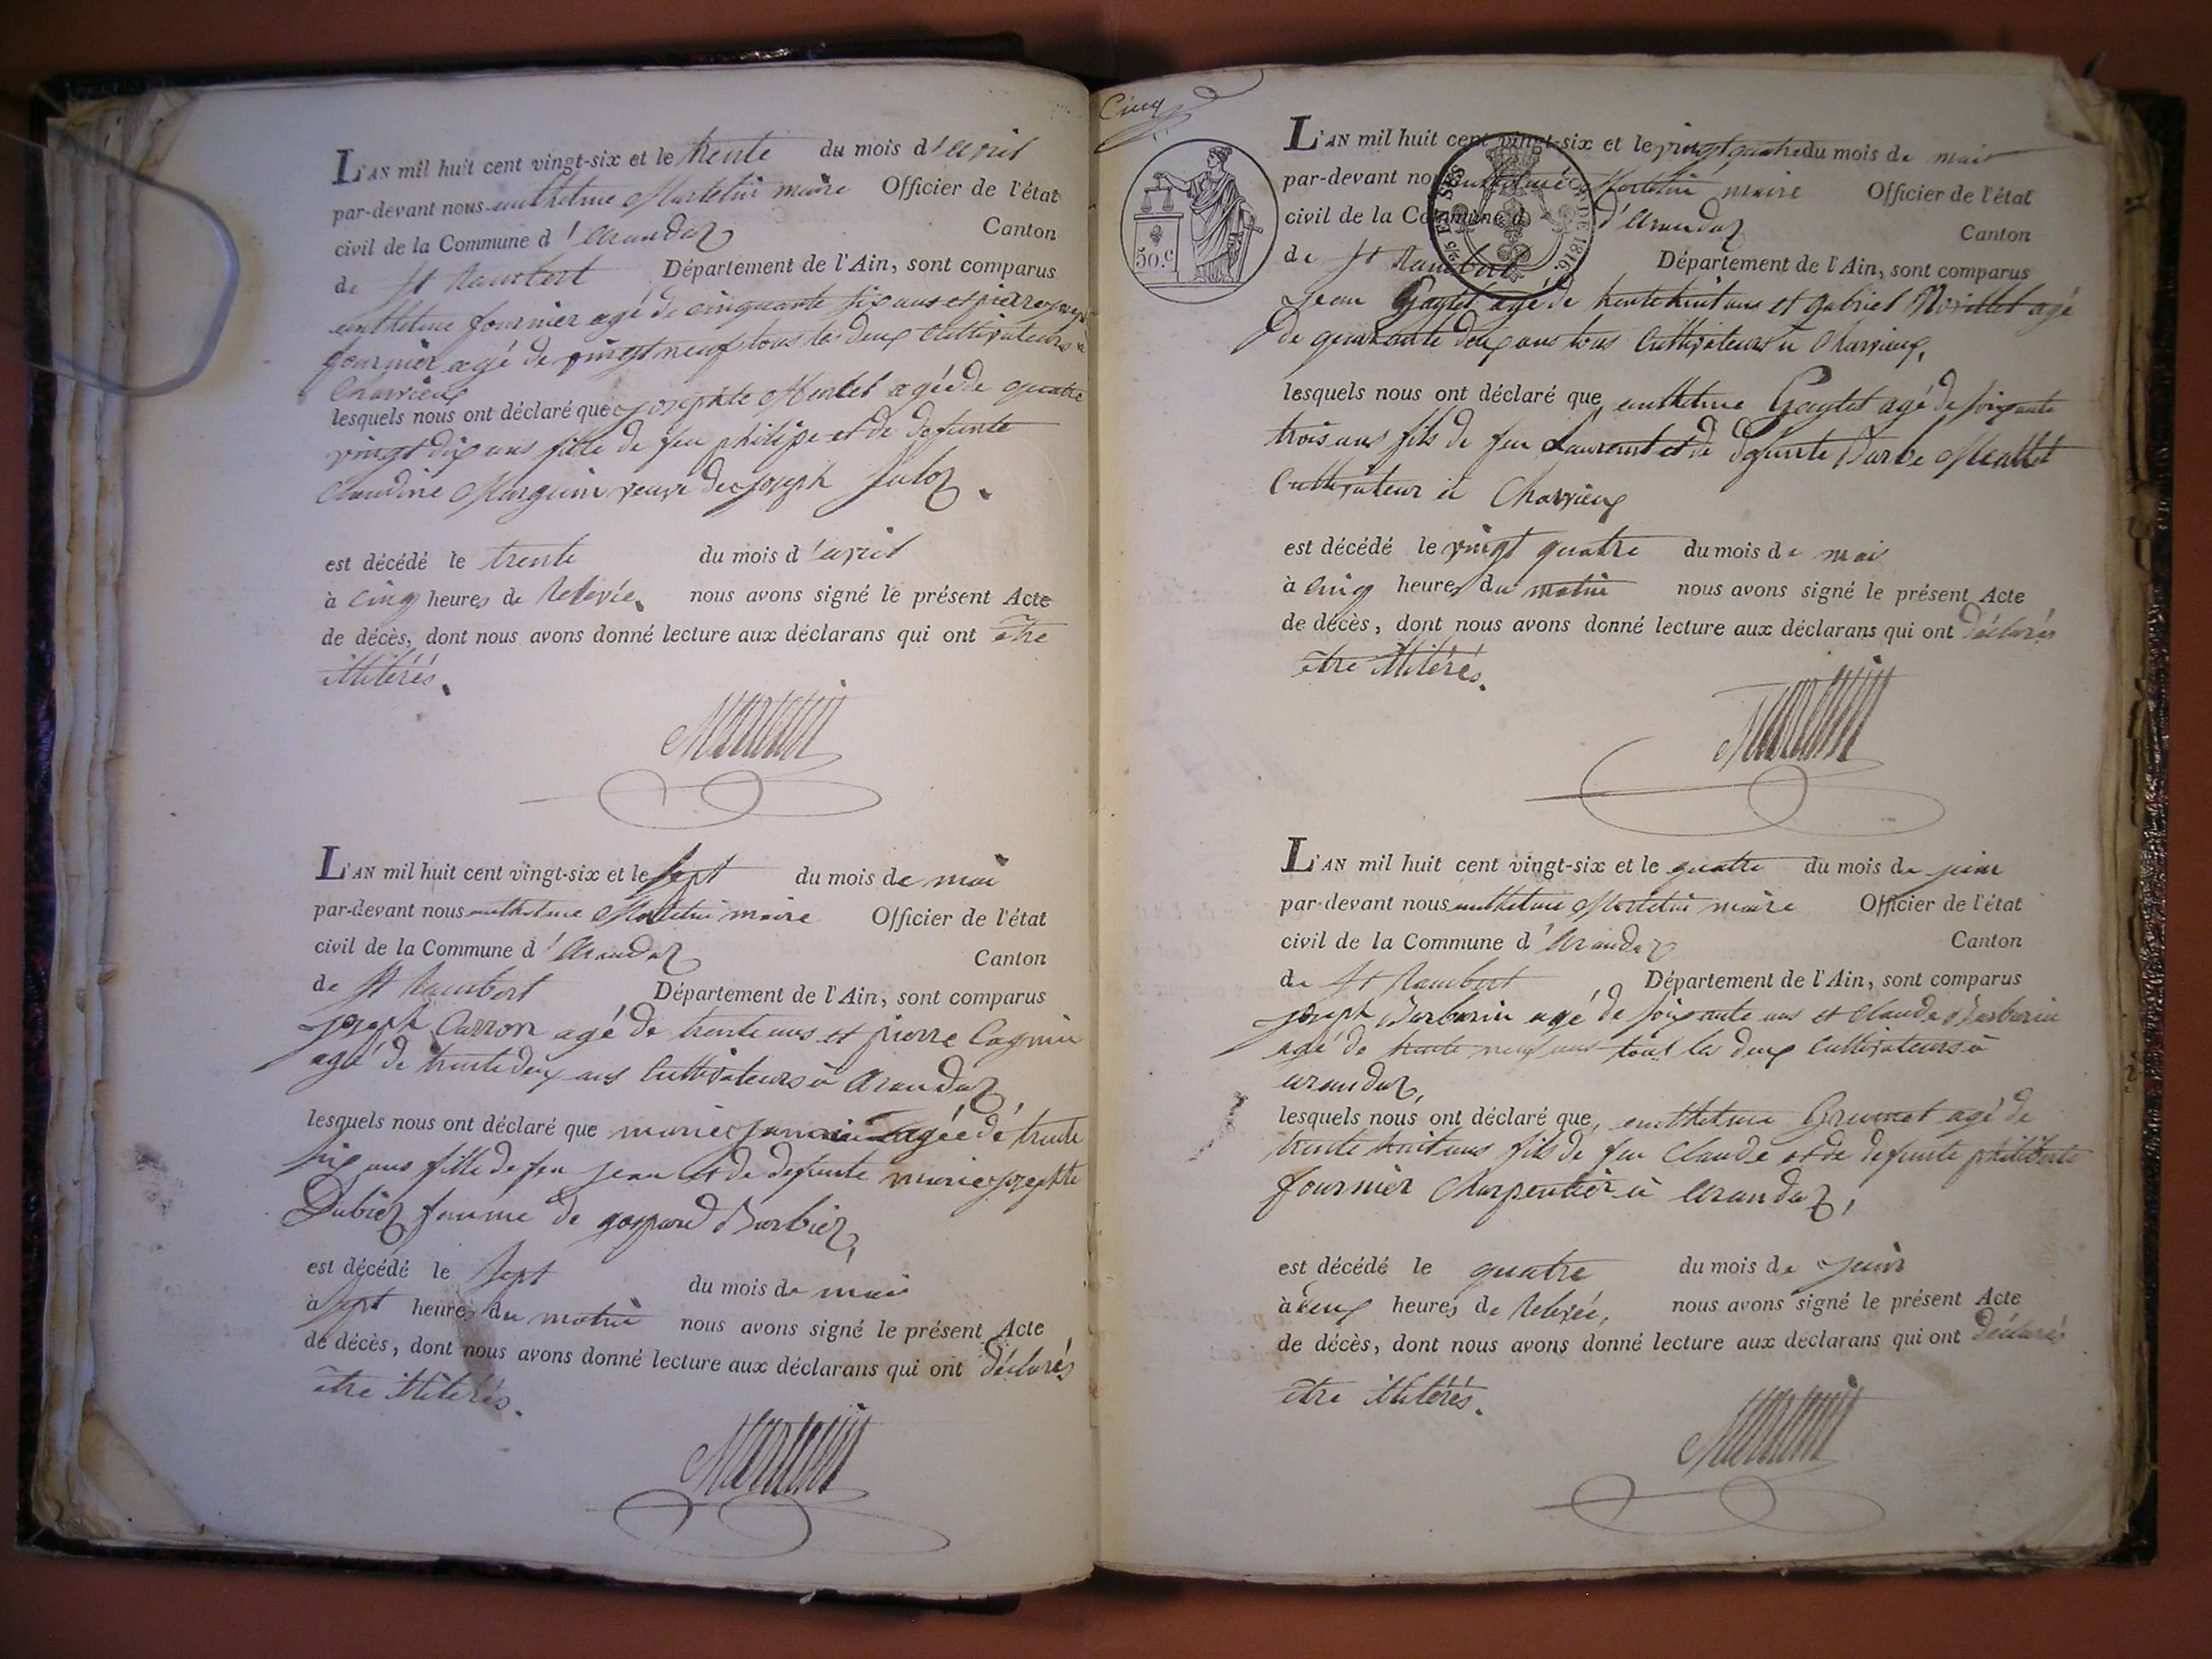 L'AN mil huit cent vingt-six et le trente du mois d'avril
par-devant nous anthelme Martelin maire Officier de l'état
civil de la Commune d'arandaz Canton
de St Rambert Département de l'Ain, sont comparus
anthelme fournier agé de cinquante six ans et pierre joseph
fournier agé de vingt neuf tous les deux cultivateurs à
Charvieux
lesquels nous ont déclaré que josephte Merlet agée de quatre
vingt dix ans fille de feu philipe et de defunte
Claudine Marguin veuve de joseph Juloz.
est décédé le trente du mois d'avril
à cinq heures de Relevée, nous avons signé le présent Acte
de décès, dont nous avons donné lecture aux déclarans qui ont être
illitérés.
Martelin
L'AN mil huit cent vingt-six et le sept du mois de mai
par-devant nous anthelme Martelin maire Officier de l'état
civil de la Commune d'arandaz Canton
de St Rambert Département de l'Ain, sont comparus
joseph Carron agé de trente ans et pierre Cagnin
agé de trente deux ans Cultivateurs à arandaz,
lesquels nous ont déclaré que marie agée de trente
six ans fille de feu jean et de defunte marie josephte
Dubiez femme de gaspard Barbier,
est décédé le sept du mois de mai
à sept heures du matin nous avons signé le présent Acte
de décès, dont nous avons donné lecture aux déclarans qui ont déclarés
être illitérés.
Martelin
Cinq
50.c
DE 1816.
L'AN mil huit cent vingt-six et le vingt quatre du mois de mai
par-devant nous anthelme Martelin maire Officier de l'état
civil de la Commune d d'arandaz Canton
de St Rambert Département de l'Ain, sont comparus
Jean Gaytet agé de trente huit ans et gabriel agé
de quarante deux ans tous Cultivateurs à Charvieux,
lesquels nous ont déclaré que, anthelme Gaytet agé de soixante
trois ans fils de feu Laurent et de defunte Barbe Mallet
Cultivateur à Charvieux
est décédé le vingt quatre du mois de mai
à cinq heures du matin nous avons signé le présent Acte
de décès, dont nous avons donné lecture aux déclarans qui ont déclarés
être illitérés.
Martelin
L'AN mil huit cent vingt-six et le quatre du mois de juin
par-devant nous anthelme Martelin maire Officier de l'état
civil de la Commune d'arandaz Canton
de St Rambert Département de l'Ain, sont comparus
joseph Barbarin agé de soixante ans et Claude Barbarin
agé de trente neuf ans tous les deux Cultivateurs à
arandaz,
lesquels nous ont déclaré que, anthelme Grumet agé de
trente huit ans fils de feu Claude et de defunte philiberte
fournier charpentier à arandaz,
est décédé le quatre du mois de juin
à deux heures de Relevée, nous avons signé le présent Acte
de décès, dont nous avons donné lecture aux déclarans qui ont déclarés
être illitérés.
Martelin